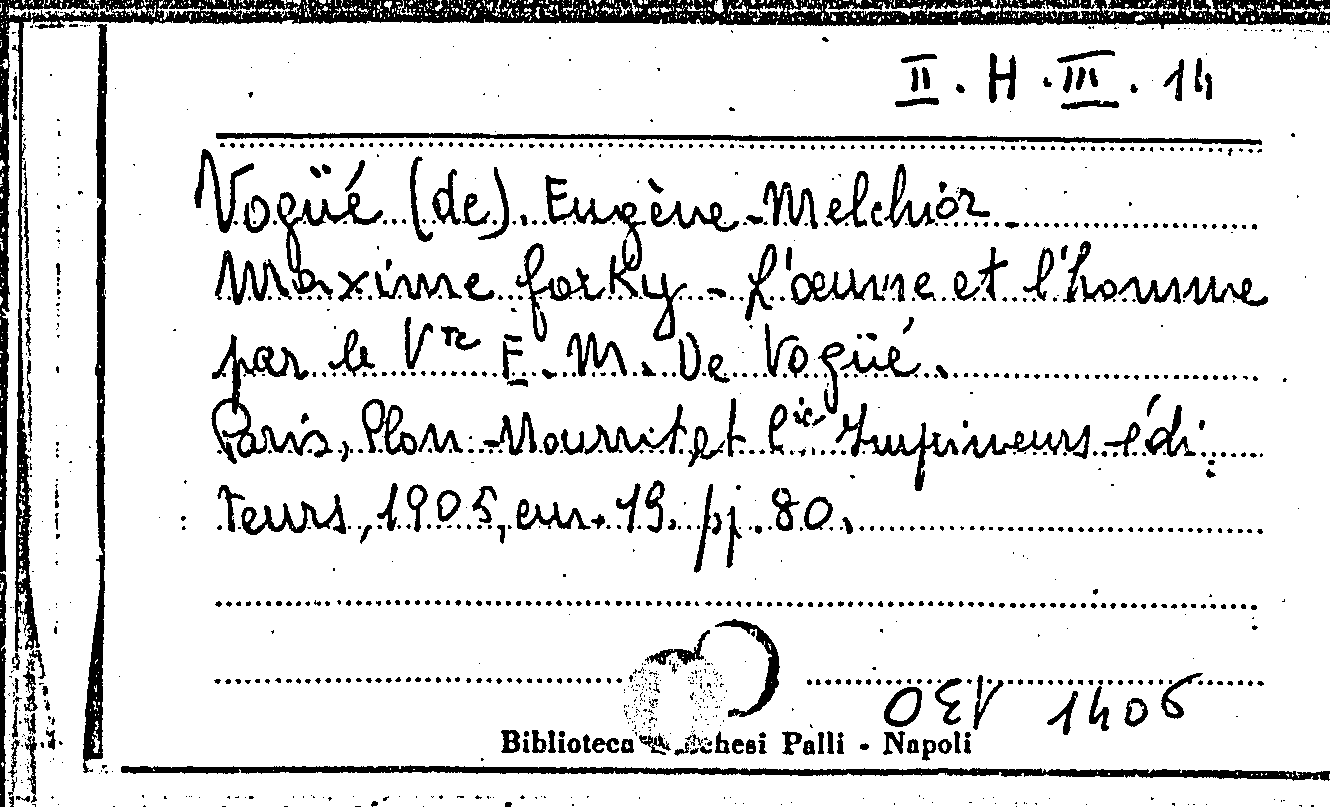 II. H. III. 14
Vogüé (de). Eugène-Melchior
Maxime Gorky - L'œuvre et l'homme
par le Vte E. M. De Vogüé.
Paris, Plon-Nourrit et Cie Imprimeurs-édi
teurs, 1905, cm. 19. pp. 80.
1406
Biblioteca chesi Palli - Napoli